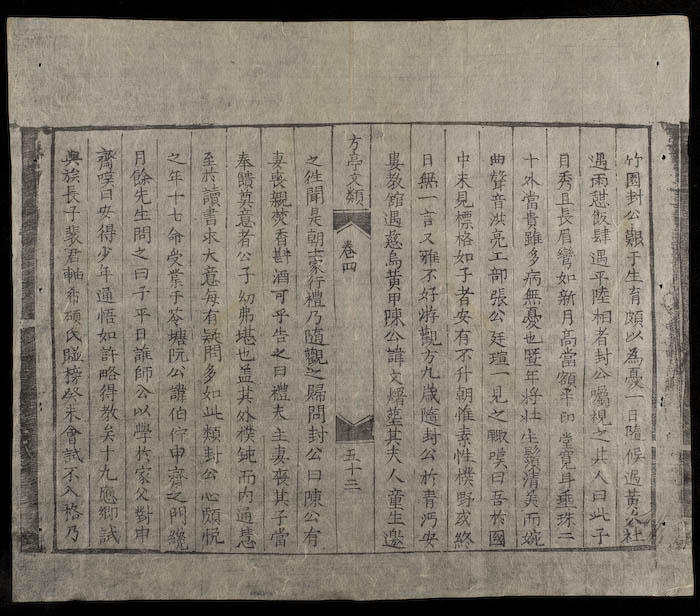 竹園封公艱于生育頗以為憂一日隨候過黃公社
遇雨憇飯肆遇平陸相者封公囑視之其人曰此子
目秀且長眉彎如新月高當額平印堂寬耳垂珠二
十外當貴雖多病無憂也曁年將壯生鬚清美而婉
曲聲音洪亮工部張公廷瑄一見之輙嘆曰吾於國
中未見標格如子者安有不升朝惟素性樸野或終
日無一言又雅不好游觀方九歲隨封公於青沔安
婁教館遇慈烏黃甲陳公諱文㷼塟其夫人童生邀
方亭文類
卷四
五十二
之徃聞是朝士家行禮乃隨觀之歸問封公曰陳公有
妻喪親焚香斟酒可乎告之曰禮夫主妻喪其子當
奉饋奠意者公子幼弗堪也蓋其外樸鈍而内通慧
至於讀書求大意每有疑問多如此類封公心頗悅
之年十七命受業于苓塘阮公諱伯儜申齋之門纔
月餘先生問之曰子平日誰師公以學於家父對申
齋嘆曰安得少年通悟如許略得教矣十九應鄉試
與族長子裴君軸希碩氏聯榜癸未會試不入格乃